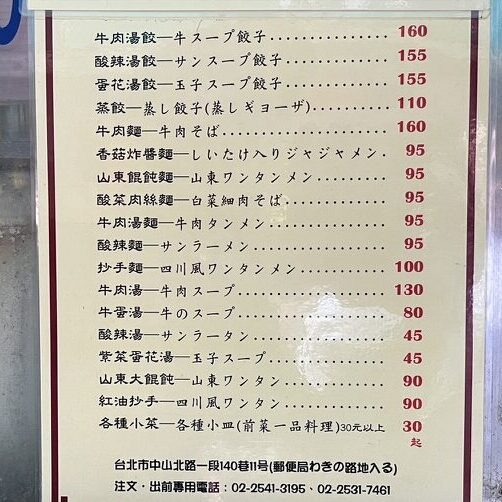 牛肉湯餃—牛スープ餃子............... 160
酸辣湯餃—サンスープ餃子............. 155
蛋花湯餃—玉子スープ餃子............. 155
蒸餃—蒸し餃子(蒸しギョーザ)......... 110
牛肉麵—牛肉そば..................... 160
香菇炸醬麵—しいたけ入りジャジャメン. 95
山東餛飩麵—山東ワンタンメン......... 95
酸菜肉絲麵—白菜細肉そば............. 95
牛肉湯麵—牛肉タンメン............... 95
酸辣麵—サンラーメン................. 95
抄手麵—四川風ワンタンメン........... 100
牛肉湯—牛肉スープ................... 130
牛蛋湯—牛のスープ................... 80
酸辣湯—サンラータン................. 45
紫菜蛋花湯—玉子スープ............... 45
山東大餛飩—山東ワンタン............. 90
紅油抄手—四川風ワンタン............. 90
各種小菜—各種小皿(前菜一品料理)30元以上 30
起
台北市中山北路一段140巷11号(郵便局わきの路地入る)
注文・出前專用電話：02-2541-3195、02-2531-7461